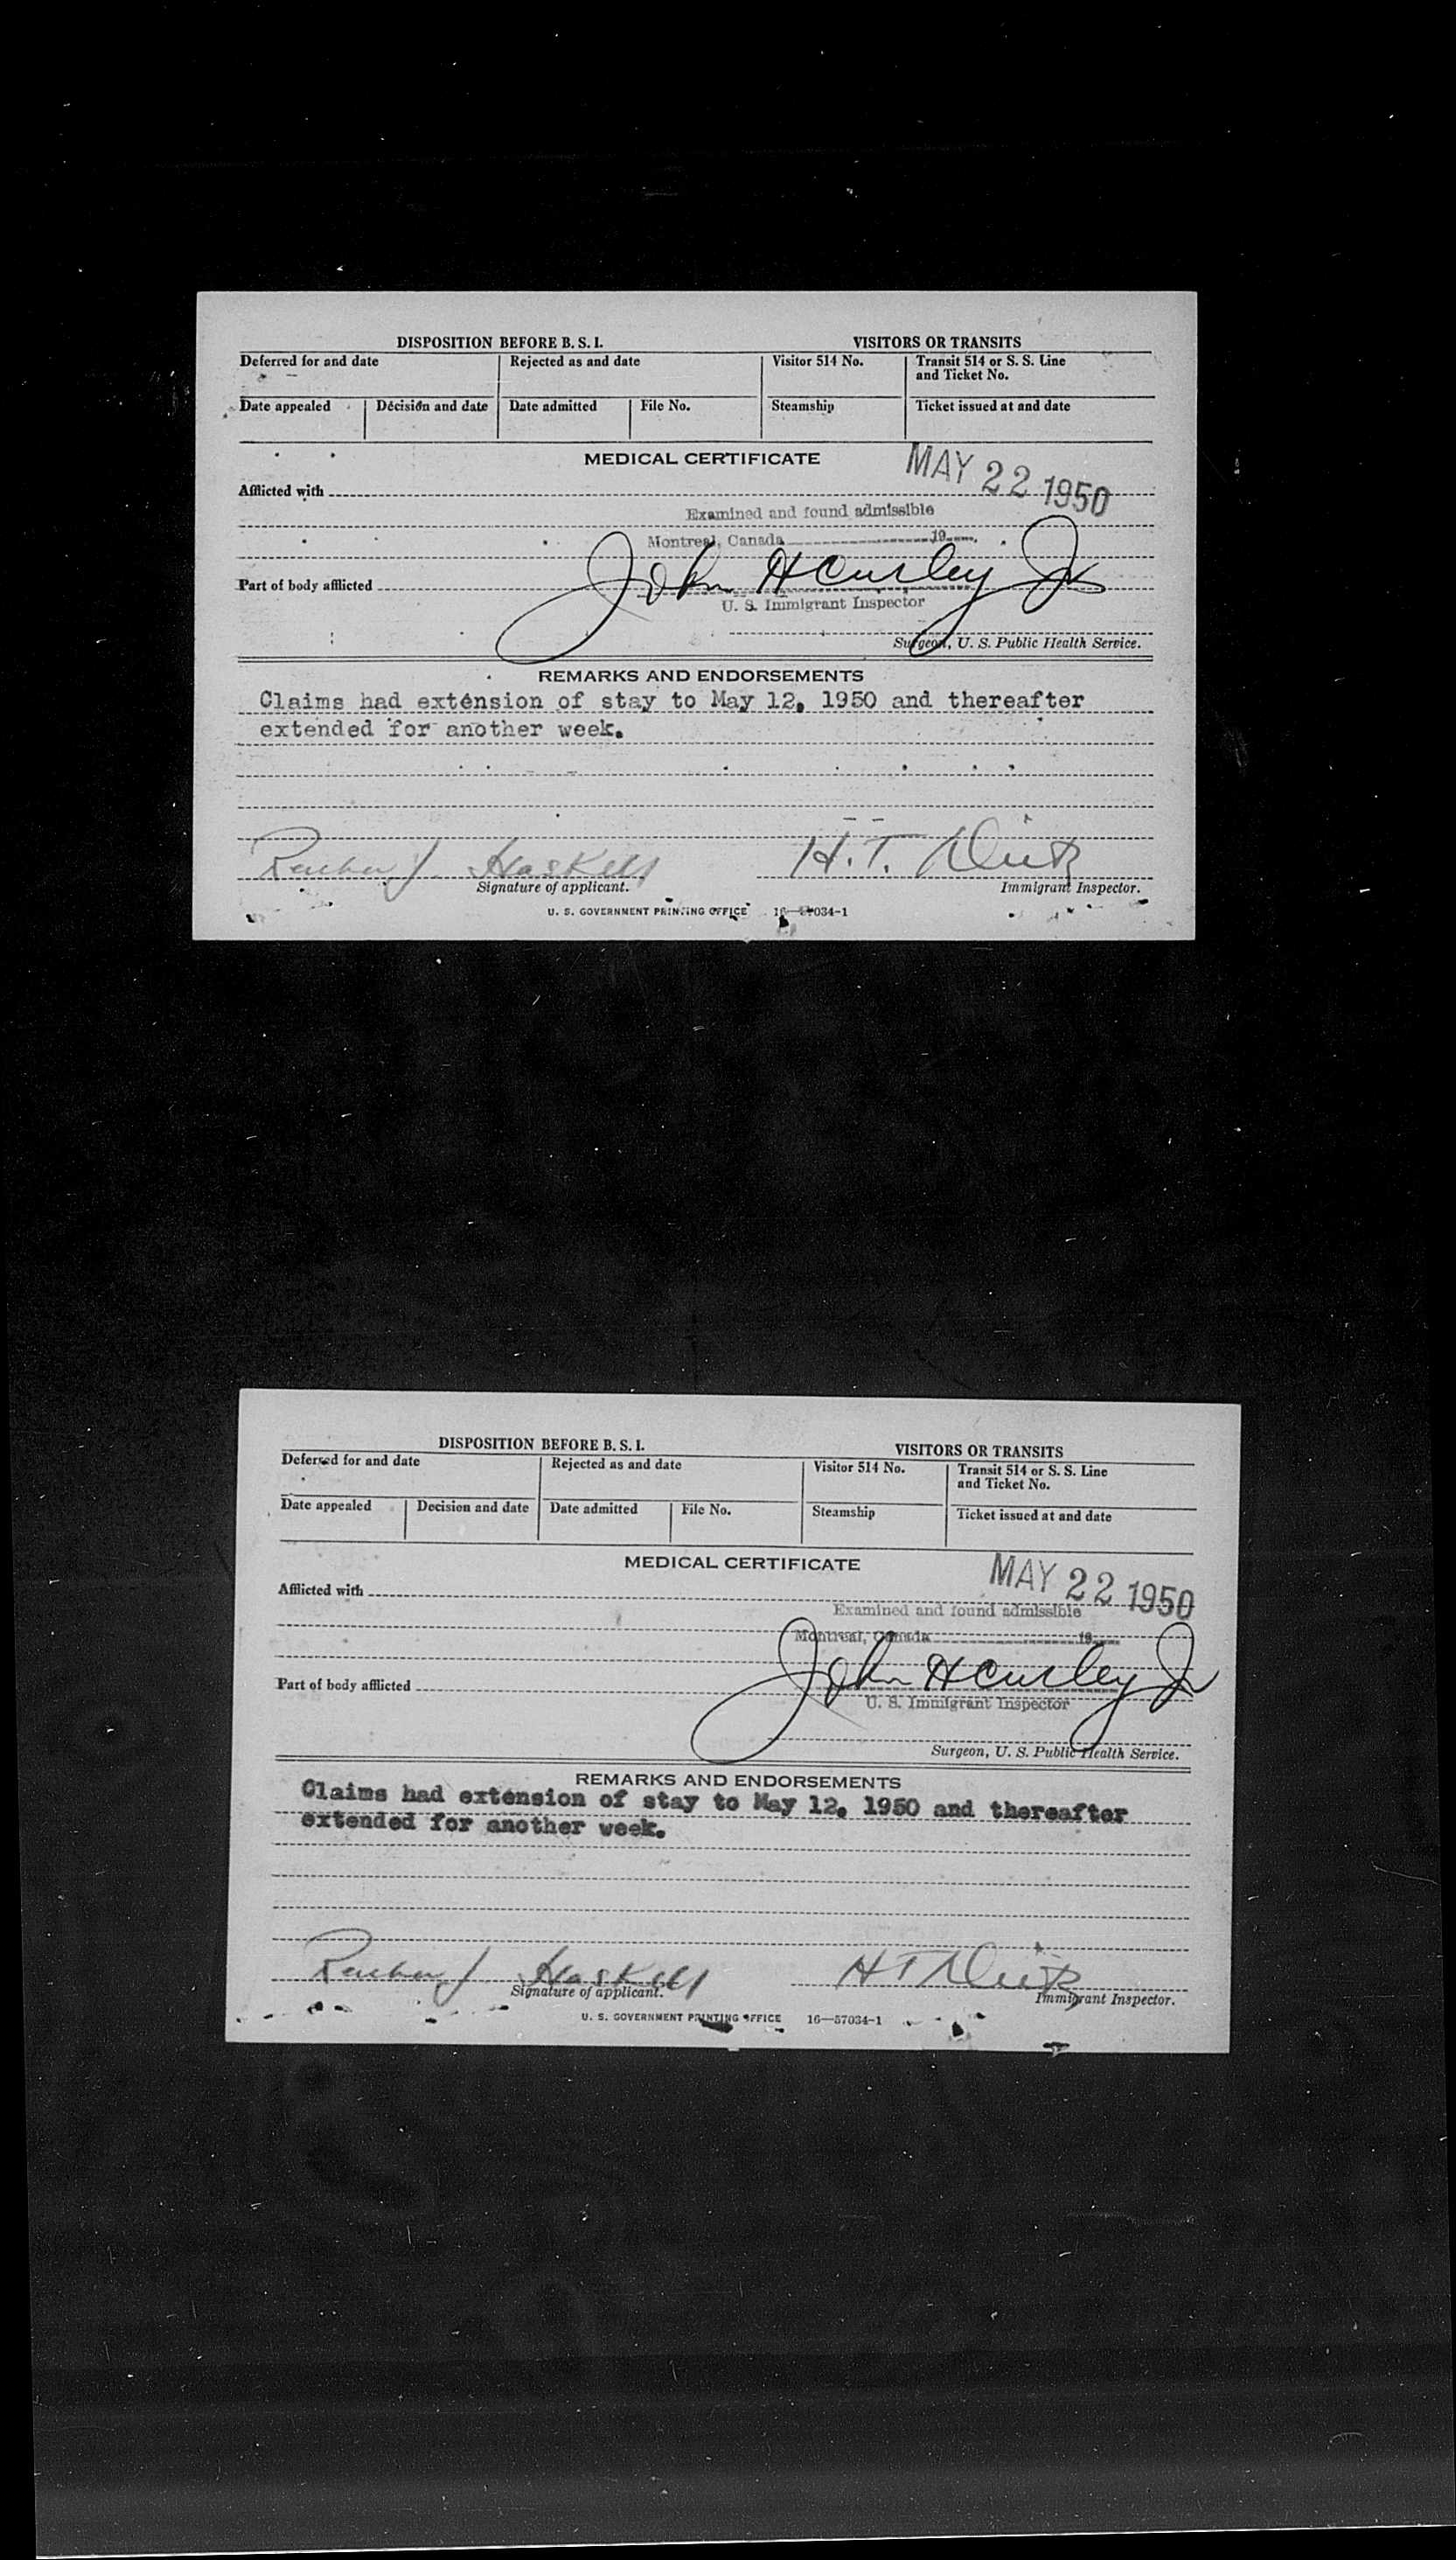 DISPOSITION BEFORE B. S. I. VISITORS OR TRANSITS
Deferred for and date Rejected as and date Visitor 514 No. Transit 514 or S. S. Line
and Ticket No.
Date appealed Decision and date Date admitted File No. Steamship Ticket issued at and date
MEDICAL CERTIFICATE
MAY 22 1950
Afflicted with
Examined and found admissible
Montreal, Canada 19
John H Curley Jr
Part of body afflicted
U. S. Immigrant Inspector
Surgeon, U. S. Public Health Service.
REMARKS AND ENDORSEMENTS
Claims had extension of stay to May 12, 1950 and thereafter
extended for another week.
J. Haskell H. T.
Signature of applicant. Immigrant Inspector.
U. S. GOVERNMENT PRINTING OFFICE 16—57034-1
DISPOSITION BEFORE B. S. I. VISITORS OR TRANSITS
Deferred for and date Rejected as and date Visitor 514 No. Transit 514 or S. S. Line
and Ticket No.
Date appealed Decision and date Date admitted File No. Steamship Ticket issued at and date
MEDICAL CERTIFICATE
MAY 22 1950
Afflicted with
Examined and found admissible
Montreal, Canada 19
John H Curley Jr
Part of body afflicted
U. S. Immigrant Inspector
Surgeon, U. S. Public Health Service.
REMARKS AND ENDORSEMENTS
Claims had extension of stay to May 12, 1950 and thereafter
extended for another week.
J. Haskell H T
Signature of applicant. Immigrant Inspector.
U. S. GOVERNMENT PRINTING OFFICE 16—57034-1